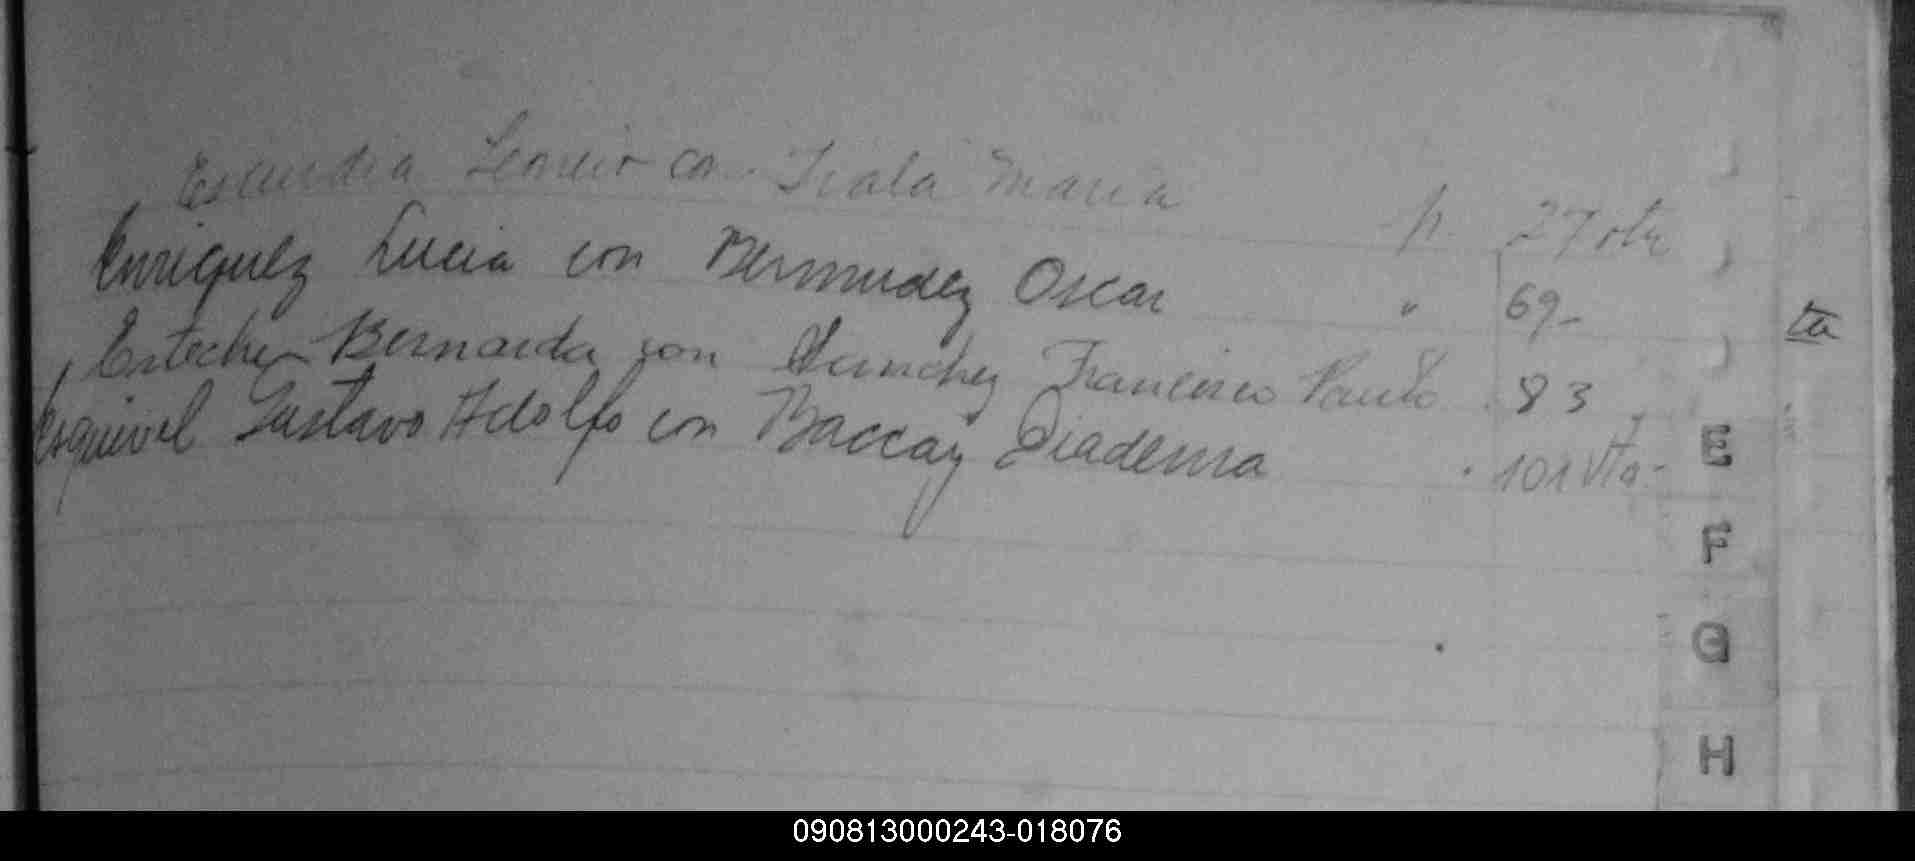 con Irala Maria p. 27 vta
Enriquez Lucia con Bermudez Oscar " 69-
Esteche Bernarda con Sanchez Francisco 83
Esquivel Gustavo Adolfo con Baccay Diadema . 101 Vta-
ta
E
F
G
H
090813000243-018076